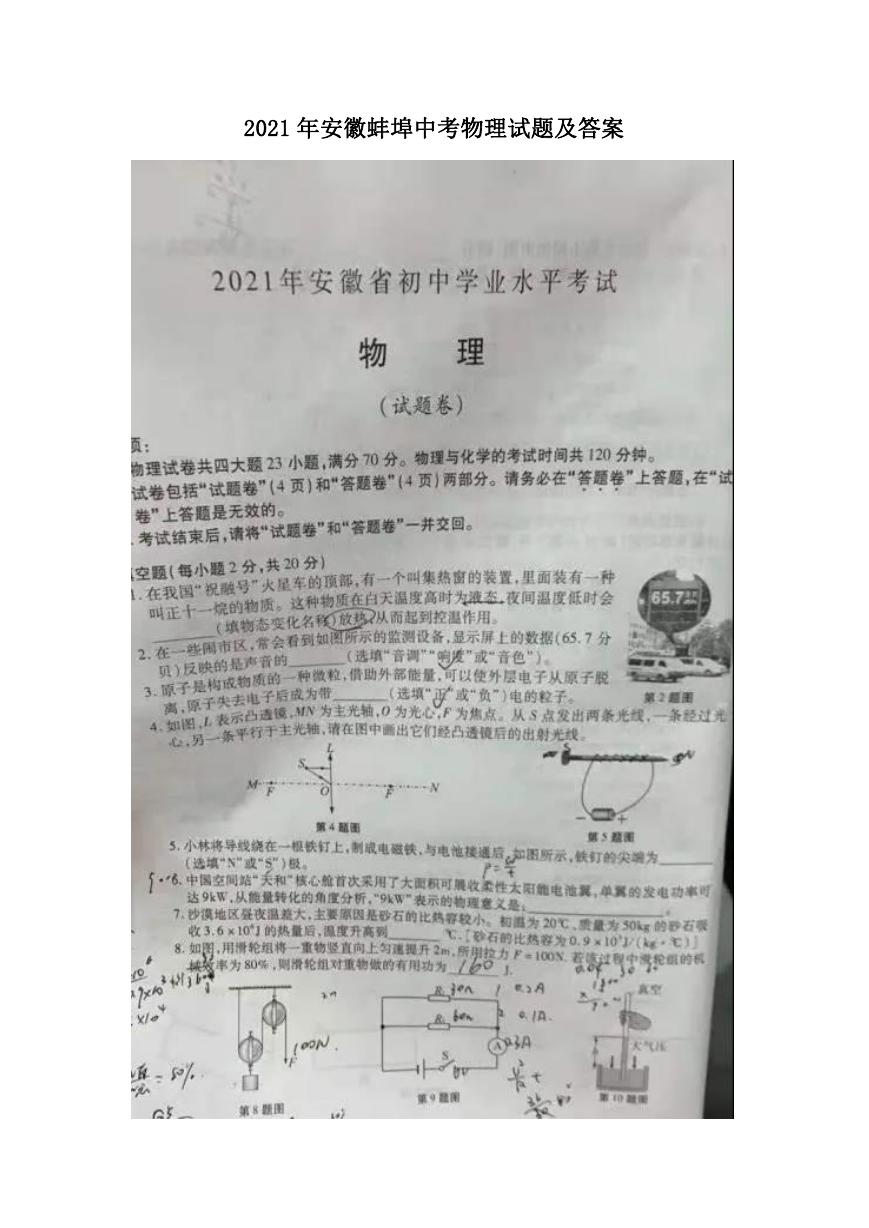 2021 年安徽蚌埠中考物理试题及答案
2021年安徽省初中学业水平考试
物 理
(试题卷)
项:
物理试卷共四大题 23 小题,满分 70 分。物理与化学的考试时间共 120 分钟。
试卷包括“试题卷”(4 页)和“答题卷”(4 页)两部分。请务必在“答题卷”上答题,在“试
卷”上答题是无效的。
考试结束后,请将“试题卷”和“答题卷”一并交回。
空题(每小题 2 分,共 20 分)
1. 在我国“祝融号”火星车的顶部,有一个叫集热窗的装置,里面装有一种
叫正十一烷的物质。这种物质在白天温度高时为液态,夜间温度低时会
______(填物态变化名称)放热,从而起到控温作用。
65.7
2. 在一些闹市区,常会看到如图所示的监测设备,显示屏上的数据(65. 7 分
贝)反映的是声音的______(选填“音调”“响度”或“音色”)。
3. 原子是构成物质的一种微粒,借助外部能量,可以使外层电子从原子脱
离,原子失去电子后成为带______(选填“正”或“负”)电的粒子。
第 2 题图
4. 如图,L 表示凸透镜,MN 为主光轴,O 为光心,F 为焦点。从 S 点发出两条光线,一条经过光
心,另一条平行于主光轴,请在图中画出它们经凸透镜后的出射光线。
L
S
M F O F N
S N
- +
第 4 题图
第 5 题图
5. 小林将导线绕在一根铁钉上,制成电磁铁,与电池接通后,如图所示,铁钉的尖端为______
(选填“N”或“S”)极。
6. 中国空间站“天和”核心舱首次采用了大面积可展收柔性太阳能电池翼,单翼的发电功率可
达 9kW,从能量转化的角度分析,“9kW”表示的物理意义是:______。
7. 沙漠地区昼夜温差大,主要原因是砂石的比热容较小。初温为 20℃、质量为 50kg 的砂石吸
收 3.6×10⁵J 的热量后,温度升高到______℃。[砂石的比热容为 0.9×10³J/(kg·℃)]
8. 如图,用滑轮组将一重物竖直向上匀速提升 2m,所用拉力 F=100N. 若该过程中滑轮组的机
械效率为 80%,则滑轮组对重物做的有用功为 160 J.
R₁ 30Ω 0.2A
R₂ 60Ω 0.1A
A 0.3A
S
6V
100N
F
真空
大气压
= 80%
第 8 题图
第 9 题图
第 10 题图